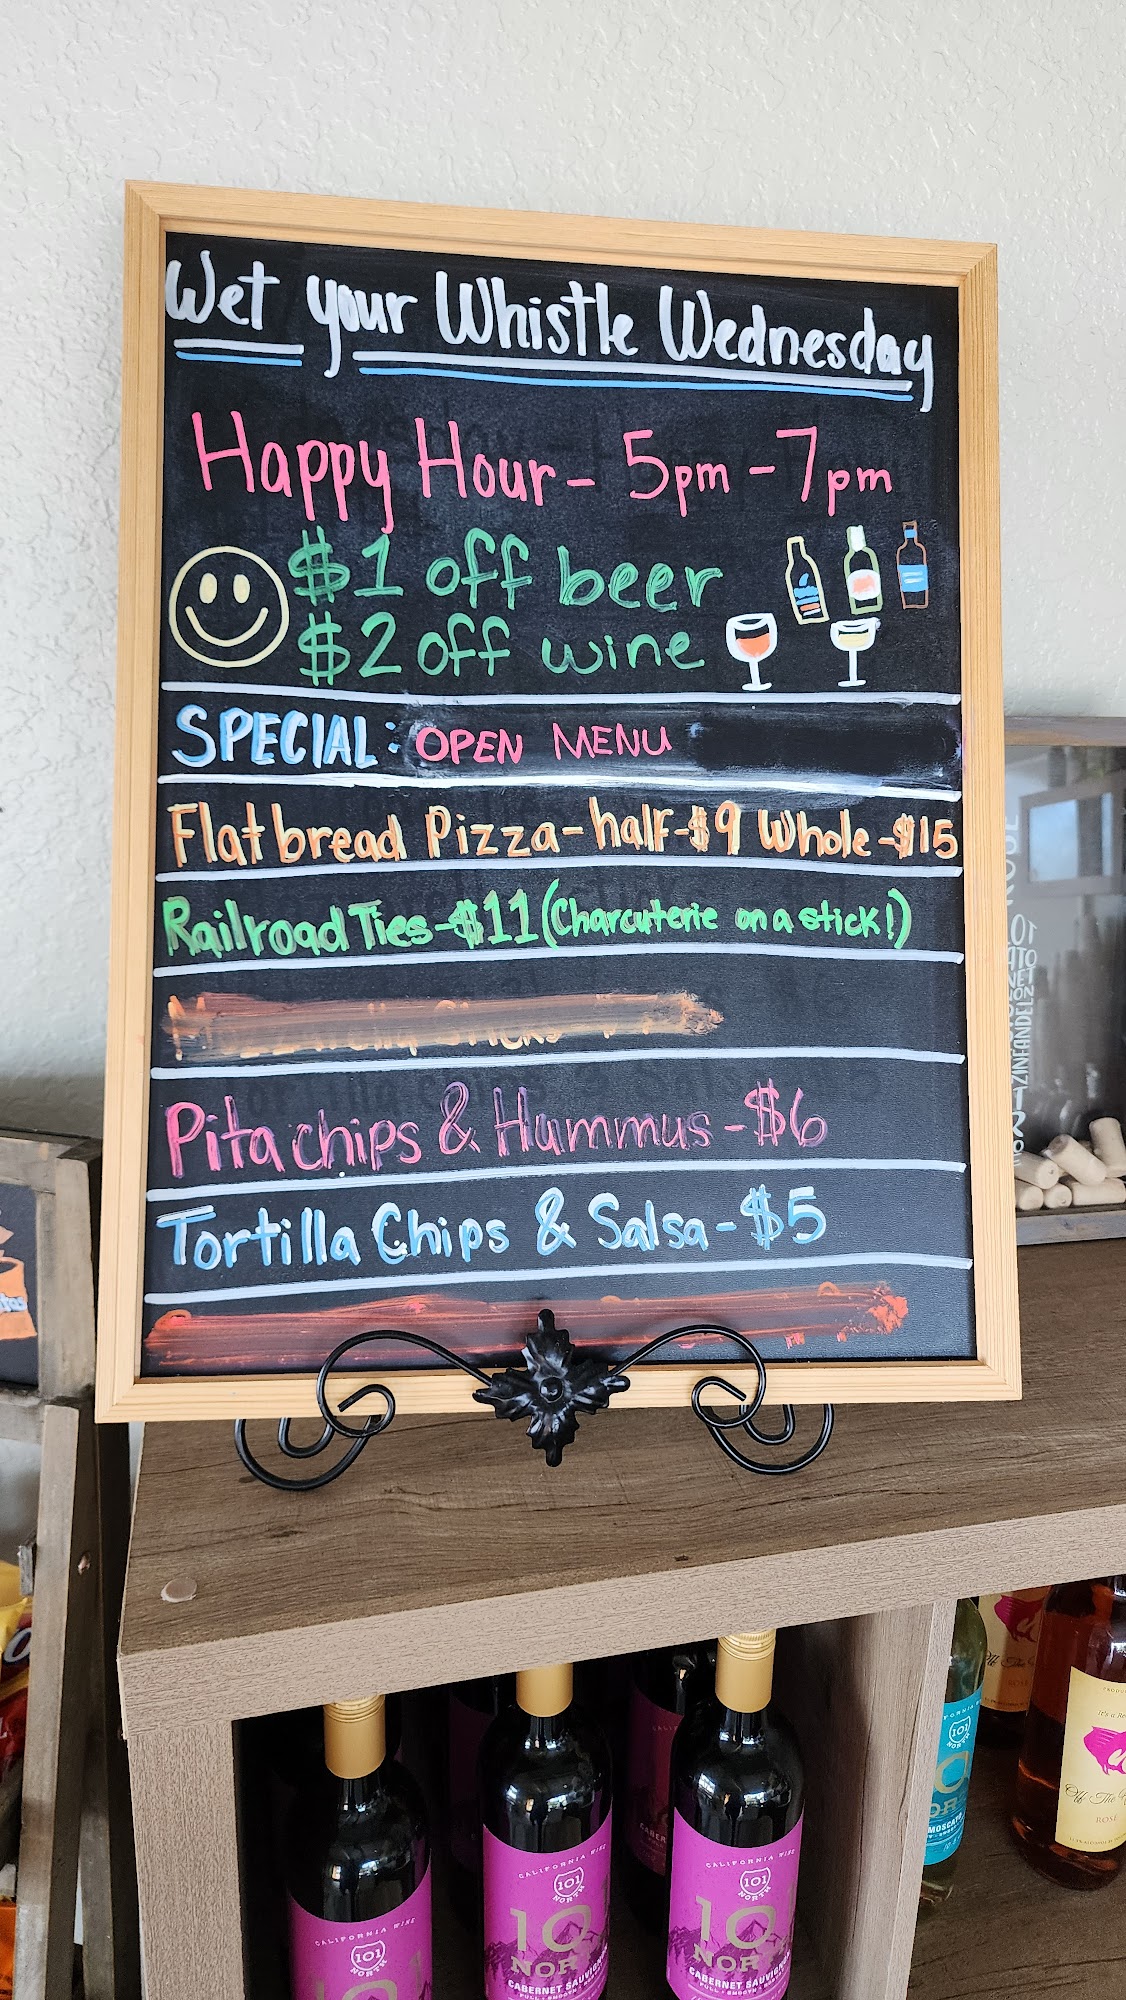 Wet your Whistle Wednesday
Happy Hour - 5pm - 7pm
$1 off beer
$2 off wine
SPECIAL: OPEN MENU
Flatbread Pizza - half - $9 Whole - $15
Railroad Ties - $11 (Charcuterie on a stick!)
sticks
Pita chips & Hummus - $6
Tortilla Chips & Salsa - $5
ZINFANDEL
CALIFORNIA WINE
101
NORTH
CALIFORNIA WINE
101
NORTH
10
NOR
CABERNET SAUVIGNON
CALIFORNIA WINE
101
NORTH
10
NORT
CABERNET SAUVIGNON
101
NORTH
MOSCATO
Off The
ROSÉ